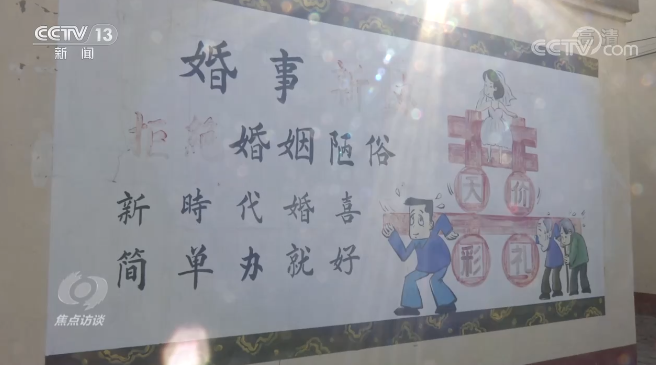 CCTV 13
新闻
高清
CCTV.com
婚事新
拒绝婚姻陋俗
新時代婚喜
简单办就好
天价
彩礼
焦点访谈